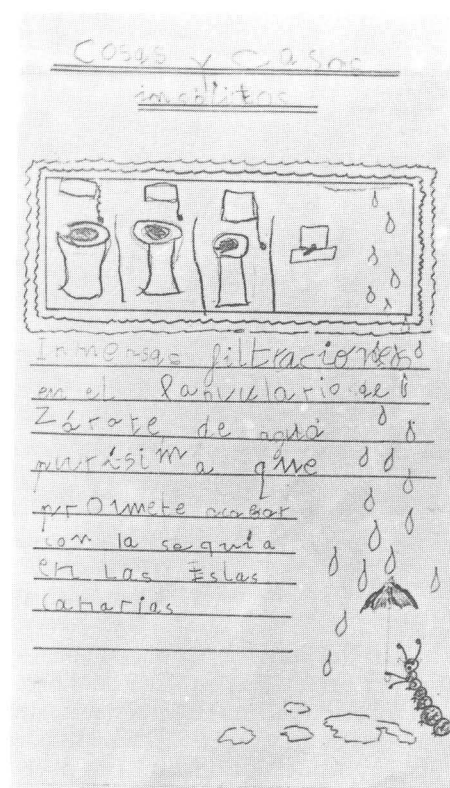 Cosas y Casos
insólitos
Inmensas filtraciones
en el Parvulario de
Zárate, de agua
purísima que
promete acabar
con la sequía
en Las Islas
Canarias